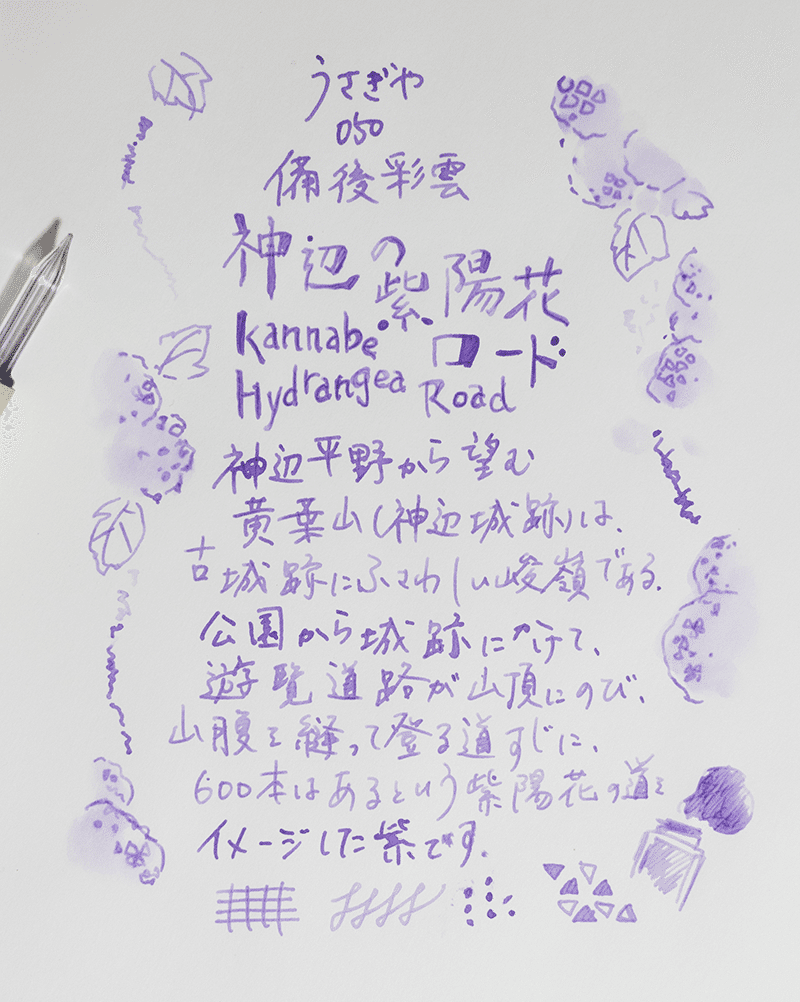 うさぎや
050
備後彩雲
神辺の紫陽花
Kannabe ロード
Hydrangea Road
神辺平野から望む
黄葉山(神辺城跡)は、
古城跡にふさわしい峻嶺である。
公園から城跡にかけて、
遊覧道路が山頂にのび、
山腹を縫って登る道すじに、
600本はあるという紫陽花の道を
イメージした紫です。